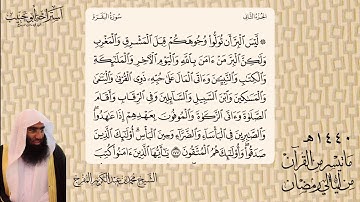 الجزء الثاني
سورة البقرة
۞ لَّيْسَ ٱلْبِرَّ أَن تُوَلُّوا۟ وُجُوهَكُمْ قِبَلَ ٱلْمَشْرِقِ وَٱلْمَغْرِبِ
وَلَٰكِنَّ ٱلْبِرَّ مَنْ ءَامَنَ بِٱللَّهِ وَٱلْيَوْمِ ٱلْءَاخِرِ وَٱلْمَلَٰٓئِكَةِ
وَٱلْكِتَٰبِ وَٱلنَّبِيِّۦنَ وَءَاتَى ٱلْمَالَ عَلَىٰ حُبِّهِۦ ذَوِى ٱلْقُرْبَىٰ وَٱلْيَتَٰمَىٰ
وَٱلْمَسَٰكِينَ وَٱبْنَ ٱلسَّبِيلِ وَٱلسَّآئِلِينَ وَفِى ٱلرِّقَابِ وَأَقَامَ
ٱلصَّلَوٰةَ وَءَاتَى ٱلزَّكَوٰةَ وَٱلْمُوفُونَ بِعَهْدِهِمْ إِذَا عَٰهَدُوا۟ ۖ
وَٱلصَّٰبِرِينَ فِى ٱلْبَأْسَآءِ وَٱلضَّرَّآءِ وَحِينَ ٱلْبَأْسِ ۗ أُو۟لَٰٓئِكَ ٱلَّذِينَ
صَدَقُوا۟ ۖ وَأُو۟لَٰٓئِكَ هُمُ ٱلْمُتَّقُونَ ١٧٧ يَٰٓأَيُّهَا ٱلَّذِينَ ءَامَنُوا۟ كُتِبَ
١٤٤٠هـ
ما تيسر من القرآن
من ليالي رمضان
الشيخ محمد بن عبد الكريم